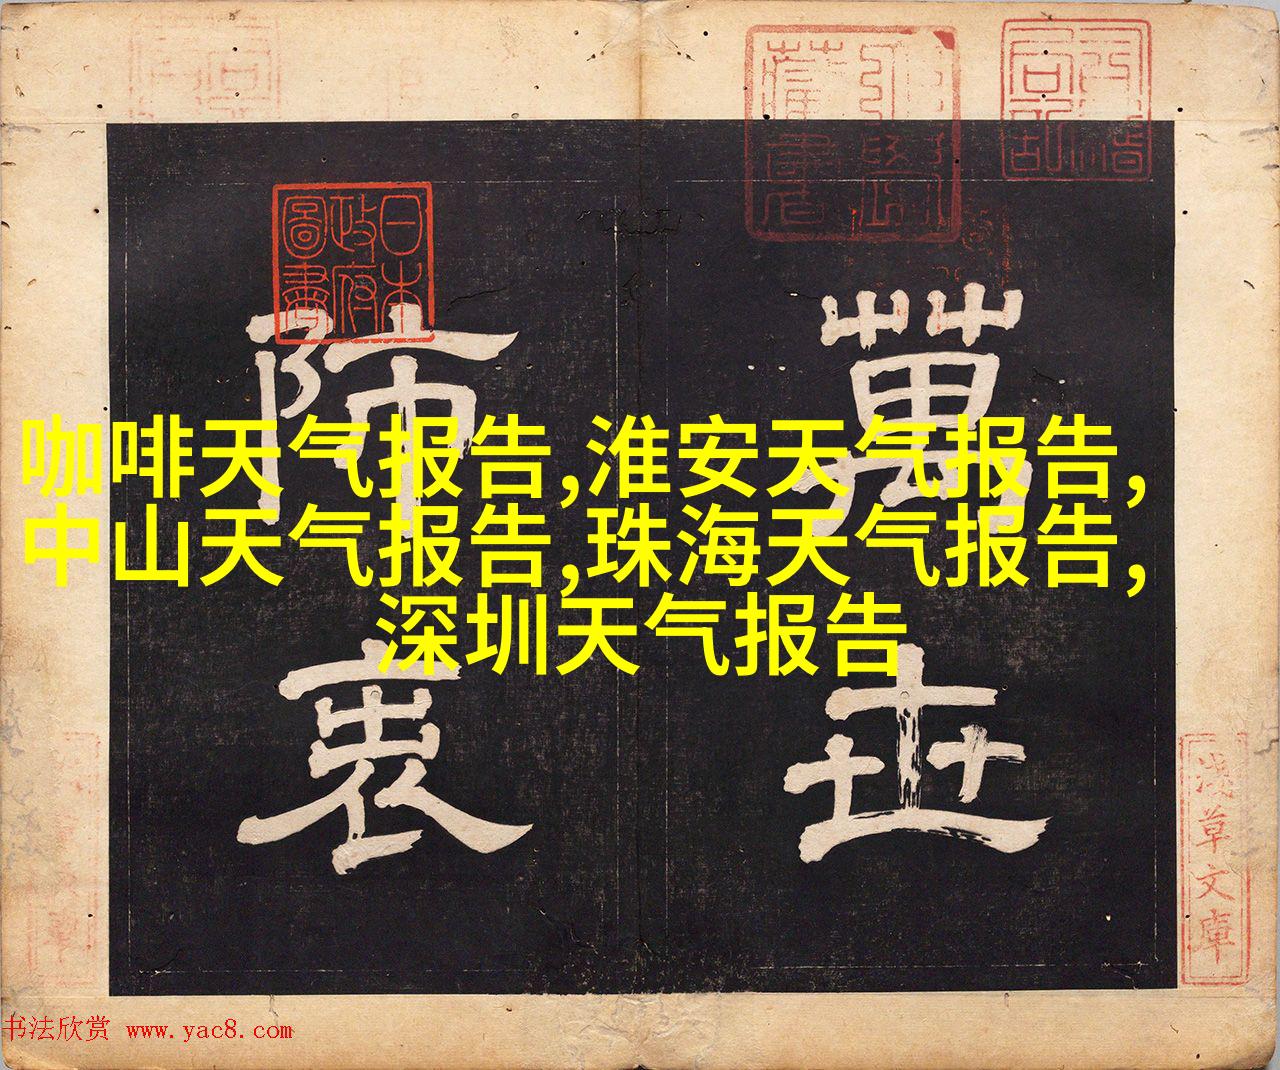 咖啡天气报告,淮安天气报告,
中山天气报告,珠海天气报告,
深圳天气报告
萬世
陟衷
日本
政府
圖書
淺草文庫
书法欣赏 www.yac8.com